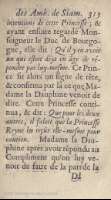 des Amb. de Siam. 313
intentions de cette Princesse, &
ayant ensuite regardé Mon-
seigneur le Duc de Bourgo-
gne, elle dit: Qu'il y en avoit
un qui estoit déja en âge de ré-
pondre par luy-mesme. Ce Prin-
ce fit alors un signe de teste,
& confirma par là ce que Ma-
dame la Dauphine venoit de
dire. Cette Princesse conti-
nua, & dit: Que pour les deux
autres, il falloit que la Princesse
Reyne les receust elle-mesme pour
Madame la Dau-
phine après avoir répondu au
Compliment qu'on luy ve-
noit de faire de la part de la
Dd